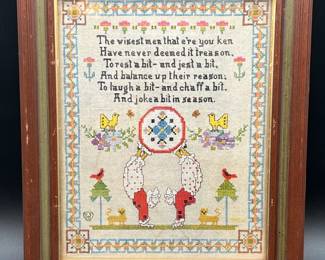 The wisest men that e're you ken
Have never deemed it treason,
To rest a bit - and jest a bit,
And balance up their reason;
To laugh a bit - and chaff a bit,
And joke a bit in season.